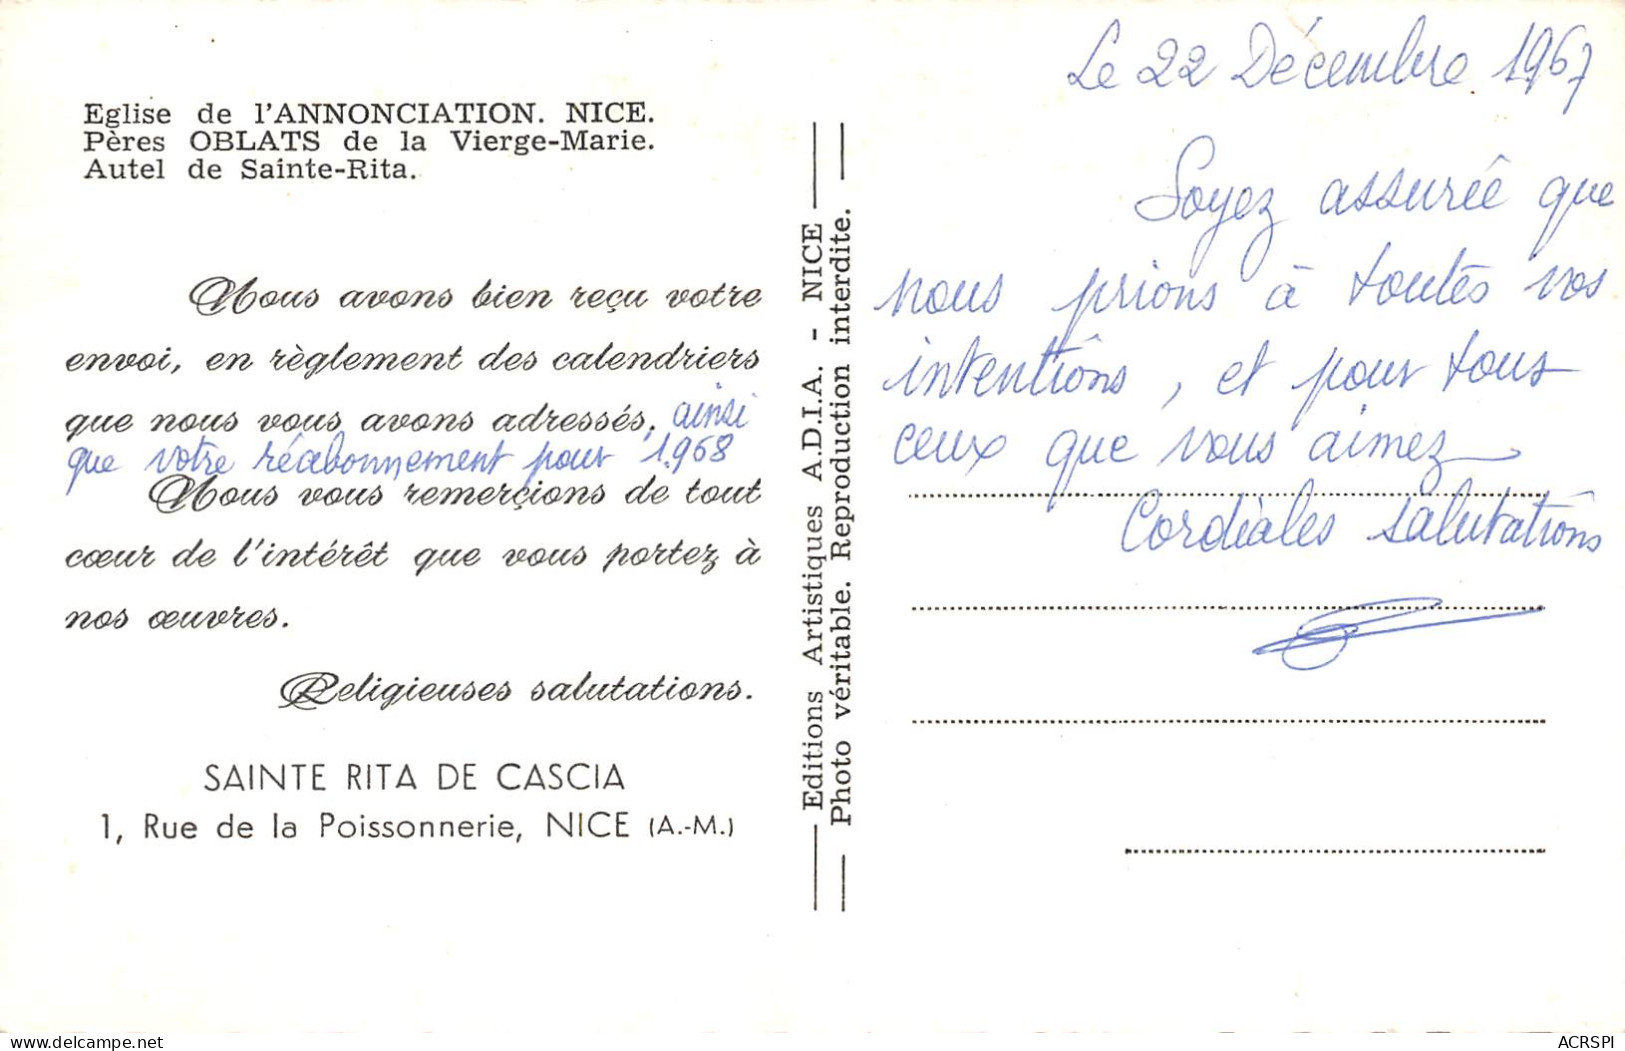 Eglise de l'ANNONCIATION. NICE.
Pères OBLATS de la Vierge-Marie.
Autel de Sainte-Rita.
Nous avons bien reçu votre
envoi, en règlement des calendriers
que nous vous avons adressés, ainsi
que votre réabonnement pour 1968
Nous vous remerçions de tout
cœur de l'intérêt que vous portez à
nos œuvres.
Religieuses salutations.
SAINTE RITA DE CASCIA
1, Rue de la Poissonnerie, NICE (A.-M.)
Editions Artistiques A.D.I.A. - NICE
Photo véritable. Reproduction interdite.
Le 22 Décembre 1967
Soyez assurée que
nous prions à toutes vos
intentions, et pour tous
ceux que vous aimez
Cordiales salutations
www.delcampe.net
ACRSPI